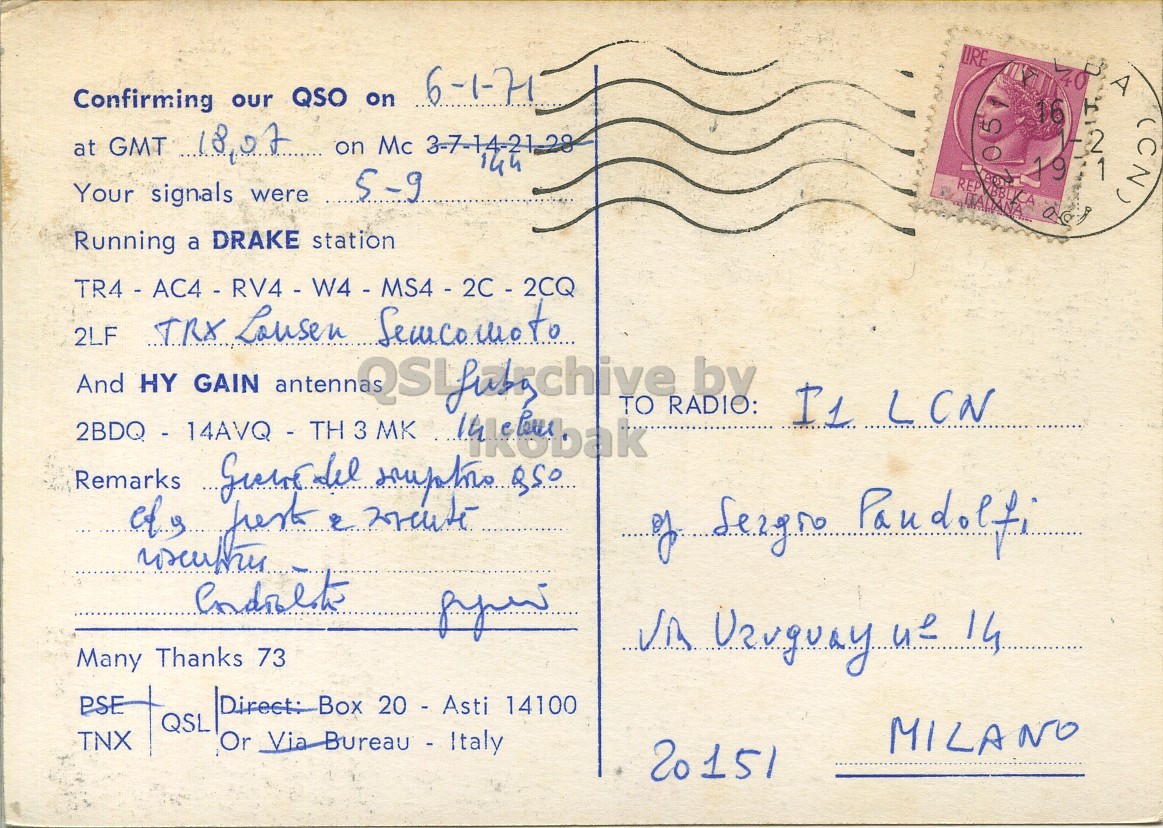 Confirming our QSO on 6-1-71
at GMT 18,07 on Mc 3-7-14-21-28
144
Your signals were 5-9
Running a DRAKE station
TR4 - AC4 - RV4 - W4 - MS4 - 2C - 2CQ
2LF TRX Lausen Semcomoto
And HY GAIN antennas
2BDQ - 14AVQ - TH 3 MK 14 elem.
Remarks del QSO
e
Many Thanks 73
PSE
TNX
QSL
Direct: Box 20 - Asti 14100
Or Via Bureau - Italy
LIRE 40
REPUBBLICA
ITALIANA
ALBA (CN)
16
19 1
TO RADIO: I1 LCN
Sergio Pandolfi
Via Uruguay nº 14
20151 MILANO
QSL archive by
Ikobak